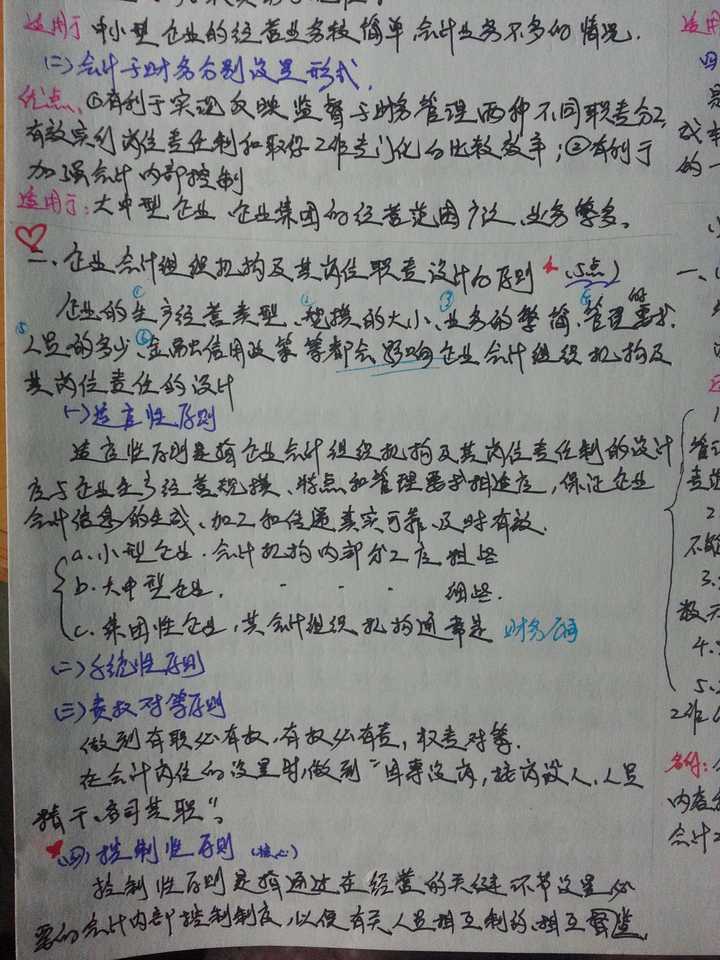 适用于 中小型企业的经营业务较简单,会计业务不多的情况.
(二)会计与财务分别设置形式.
优点.①有利于实现反映监督与财务管理两种不同职责分工,
有效实行岗位责任制和取得工作专门化的比较效率;②有利于
加强会计内部控制
适用于:大中型企业、企业集团的经营范围广泛、业务繁多。
二、企业会计组织机构及其岗位职责设计的原则 (5点)
企业的生产经营类型、规模的大小、业务的繁简、管理的需求、
人员的多少、金融信用政策等都会影响企业会计组织机构及
其岗位责任的设计
(一)适应性原则
适应性原则是指企业会计组织机构及其岗位责任制的设计
应与企业生产经营规模、特点和管理要求相适应,保证企业
会计信息的生成、加工和传递真实可靠、及时有效.
a.小型企业.会计机构内部分工应粗些
b.大中型企业. 细些.
c.集团性企业,其会计组织机构通常是 财务
(二)系统性原则
(三)责权对等原则
做到有职必有权,有权必有责,权责对等.
在会计岗位的设置时,做到"因事设岗,按岗设人.人员
精干、各司其职"。
(四)控制性原则 (核心)
控制性原则是指通过在经营的关键环节设置必
要的会计内部控制制度,以便有关人员相互制约、相互督监.
一、
1.
2
不够
3.
数
4.
5.
工作
名称:
内容
会计